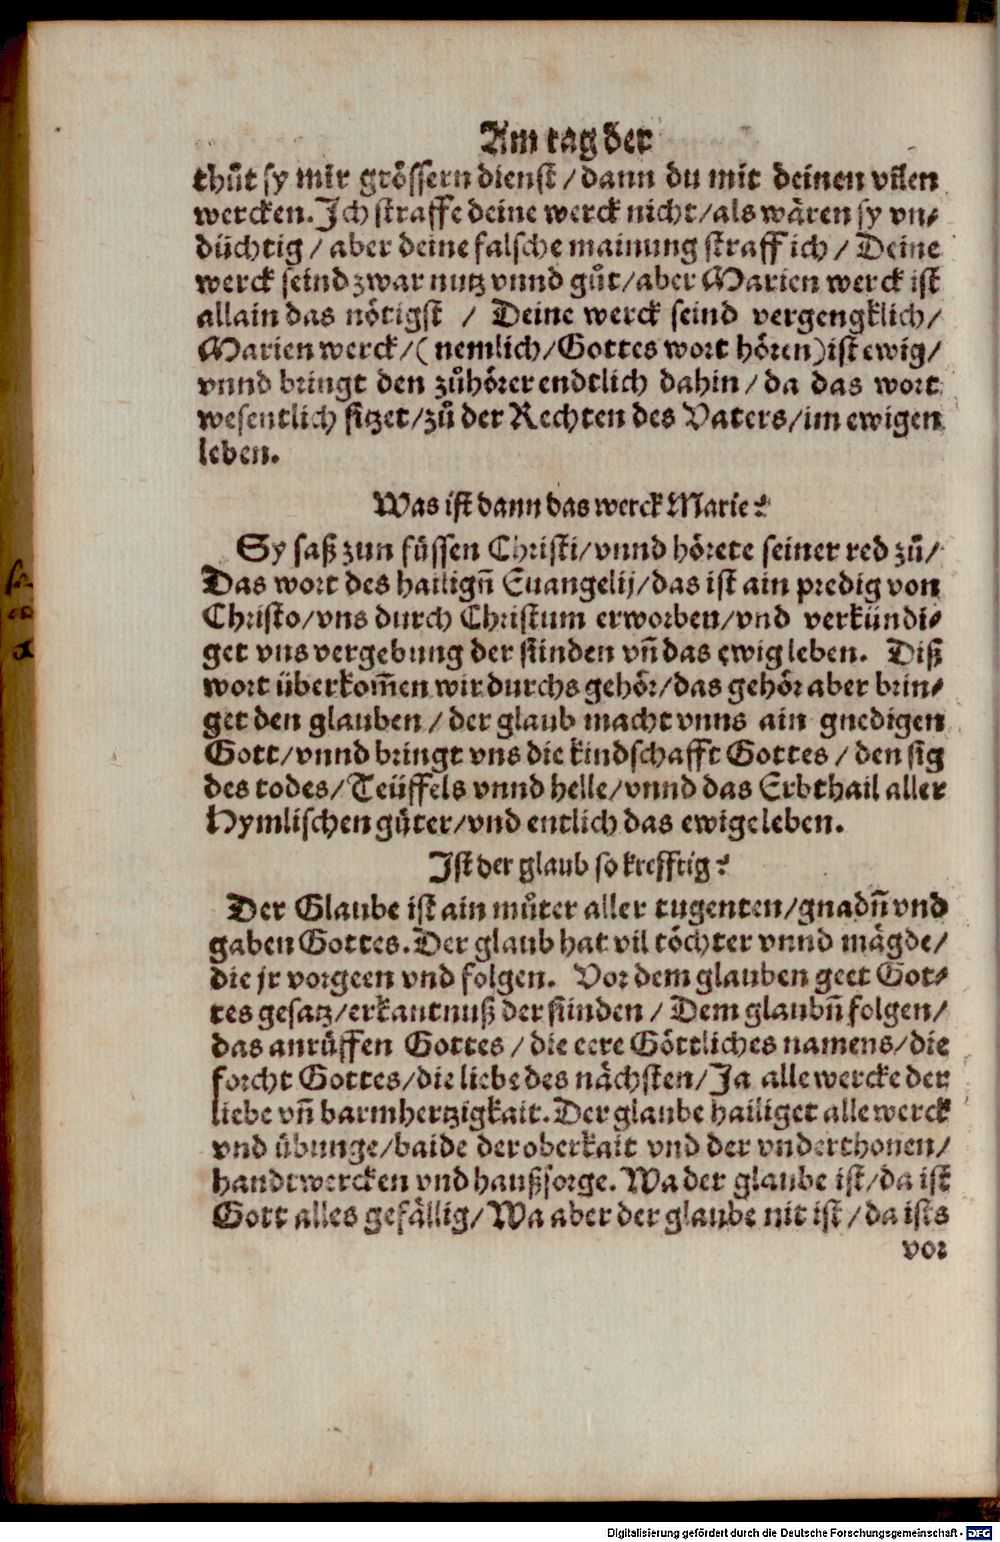 Am tag der
thůt sy mir grössern dienst / dann du mit deinen vilen
wercken. Ich straffe deine werck nicht / als wären sy vn-
düchtig / aber deine falsche mainung straff ich / Deine
werck seind zwar nutz vnnd gůt / aber Marien werck ist
allain das nötigst / Deine werck seind vergengklich /
Marien werck / ( nemlich / Gottes wort hören ) ist ewig /
vnnd bringt den zůhörer endtlich dahin / da das wort
wesentlich sitzet / zů der Rechten des Vaters / im ewigen
leben.
Was ist dann das werck Marie?
Sy saß zun füssen Christi / vnnd hörete seiner red zů /
Das wort des hailign̄ Euangelij / das ist ain predig von
Christo / vns durch Christum erworben / vnd verkündi-
get vns vergebung der sünden vn̄ das ewig leben. Diß
wort überkom̄en wir durchs gehör / das gehör aber brin-
get den glauben / der glaub macht vnns ain gnedigen
Gott / vnnd bringt vns die kindschafft Gottes / den sig
des todes / Teüffels vnnd helle / vnnd das Erbthail aller
Hymlischen gůter / vnd entlich das ewige leben.
Ist der glaub so krefftig?
Der Glaube ist ain můter aller tugenten / gnadn̄ vnd
gaben Gottes. Der glaub hat vil töchter vnnd mägde /
die jr vorgeen vnd folgen. Vor dem glauben geet Got-
tes gesatz / erkantnuß der sünden / Dem glaubn̄ folgen /
das anrůffen Gottes / die eere Göttliches namens / die
forcht Gottes / die liebe des nächsten / Ja alle wercke der
liebe vn̄ barmhertzigkait. Der glaube hailiget alle werck
vnd übunge / baide der oberkait vnd der vnderthonen /
handtwercken vnd haußsorge. Wa der glaube ist / da ist
Gott alles gefällig / Wa aber der glaube nit ist / da ists
vor
Digitalisierung gefördert durch die Deutsche Forschungsgemeinschaft - DFG